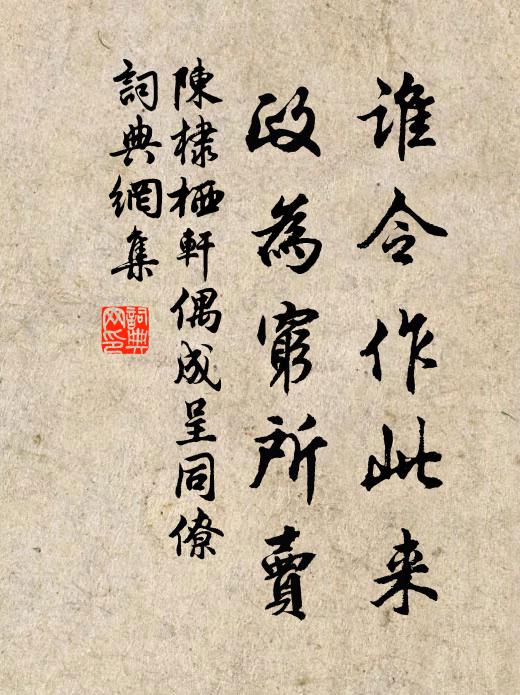 谁令作此来
政為窮所賣
陳棣栖軒偶成呈同僚
詞典網集
詞典网印